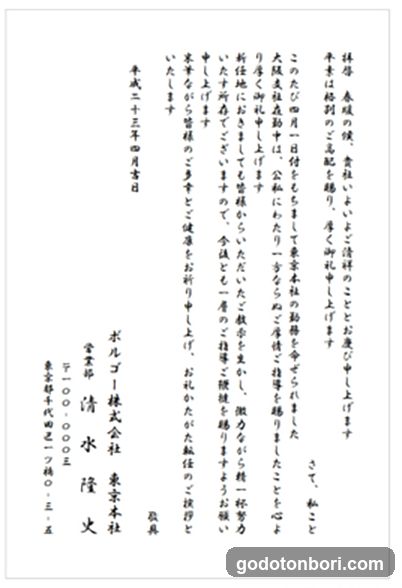 拝啓　春暖の候、貴社いよいよご清祥のこととお慶び申し上げます
平素は格別のご高配を賜り、厚く御礼申し上げます
さて、私こと
このたび四月一日付をもちまして東京本社の勤務を命ぜられました
大阪支社在勤中は、公私にわたり一方ならぬご厚情ご指導を賜りましたことを心よ
り厚く御礼申し上げます
新任地におきましても皆様からいただいたご教示を生かし、微力ながら精一杯努力
いたす所存でございますので、今後とも一層のご指導ご鞭撻を賜りますようお願い
申し上げます
末筆ながら皆様のご多幸とご健康をお祈り申し上げ、お礼かたがた転任のご挨拶と
いたします
敬具
平成二十三年四月吉日
ボルゴー株式会社　東京本社
営業部　清水隆史
〒一〇〇-〇〇〇三
東京都千代田区一ツ橋〇-三-五
godotonbori.com